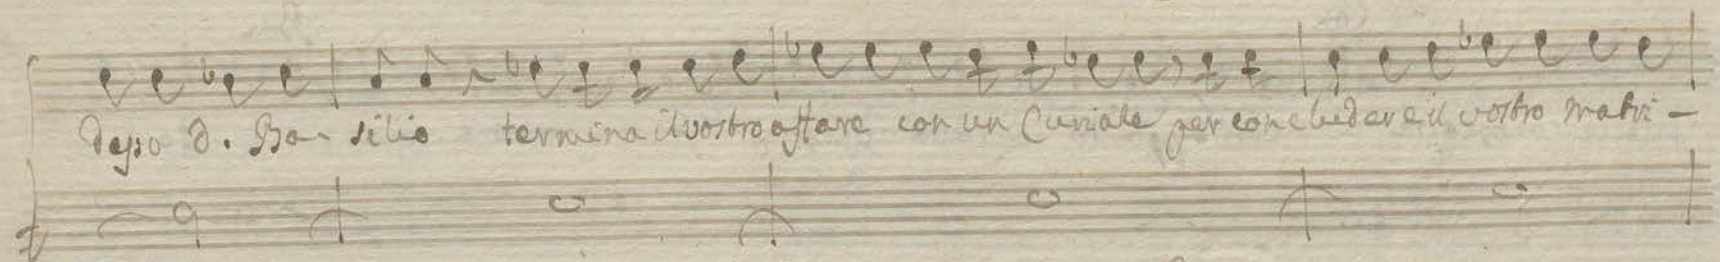 desso d. Ba- silio termina il vostro affare con un Curiale per concludere il vostro matri -